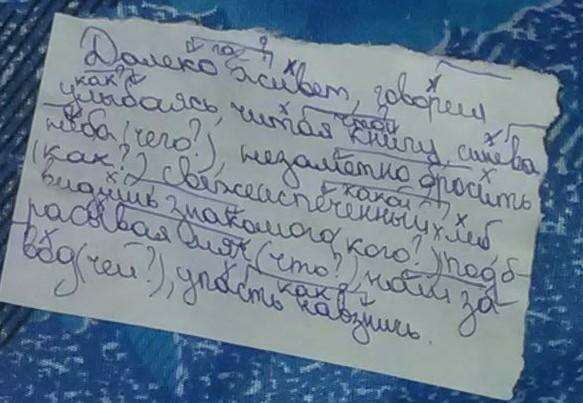 где?
Далеко живет, говорил
как?
улыбаясь, читая книгу, синева
неба (чего?), незаметно бросить
(как?) свежеиспеченный хлеб
какой?
видишь знакомого (кого?) подб-
расывая мяч (что?), наш за-
вод (чей?), упасть навзничь.
как?